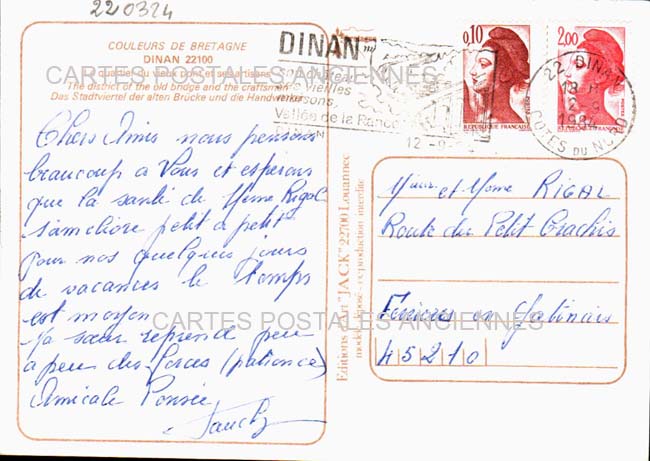 220324
COULEURS DE BRETAGNE
DINAN 22100
Le quartier du vieux pont et ses artisans
The district of the old bridge and the craftsmen
Das Stadtviertel der alten Brücke und die Handwerker
CARTES POSTALES ANCIENNES
DINAN
Vieilles
maisons,
Vallée de la Rance
12-9-
0,10
REPUBLIQUE FRANÇAISE
2,00
22 DINAN
12-9
1984
COTES DU NORD
Chers Amis nous pensons
beaucoup a Vous et esperons
que la santé de Mme Rigal
s'améliore petit a petit
pour nos quelques jours
de vacances le temps
est moyen
Ma sœur reprend peu
a peu des forces (patience)
Amicale Pensée
Editions d'Art "JACK" 22700 Louannec
modèle déposé - reproduction interdite
Mr et Mme RIGAL
Route du Petit
Ferrieres en Gatinais
45210
CARTES POSTALES ANCIENNES